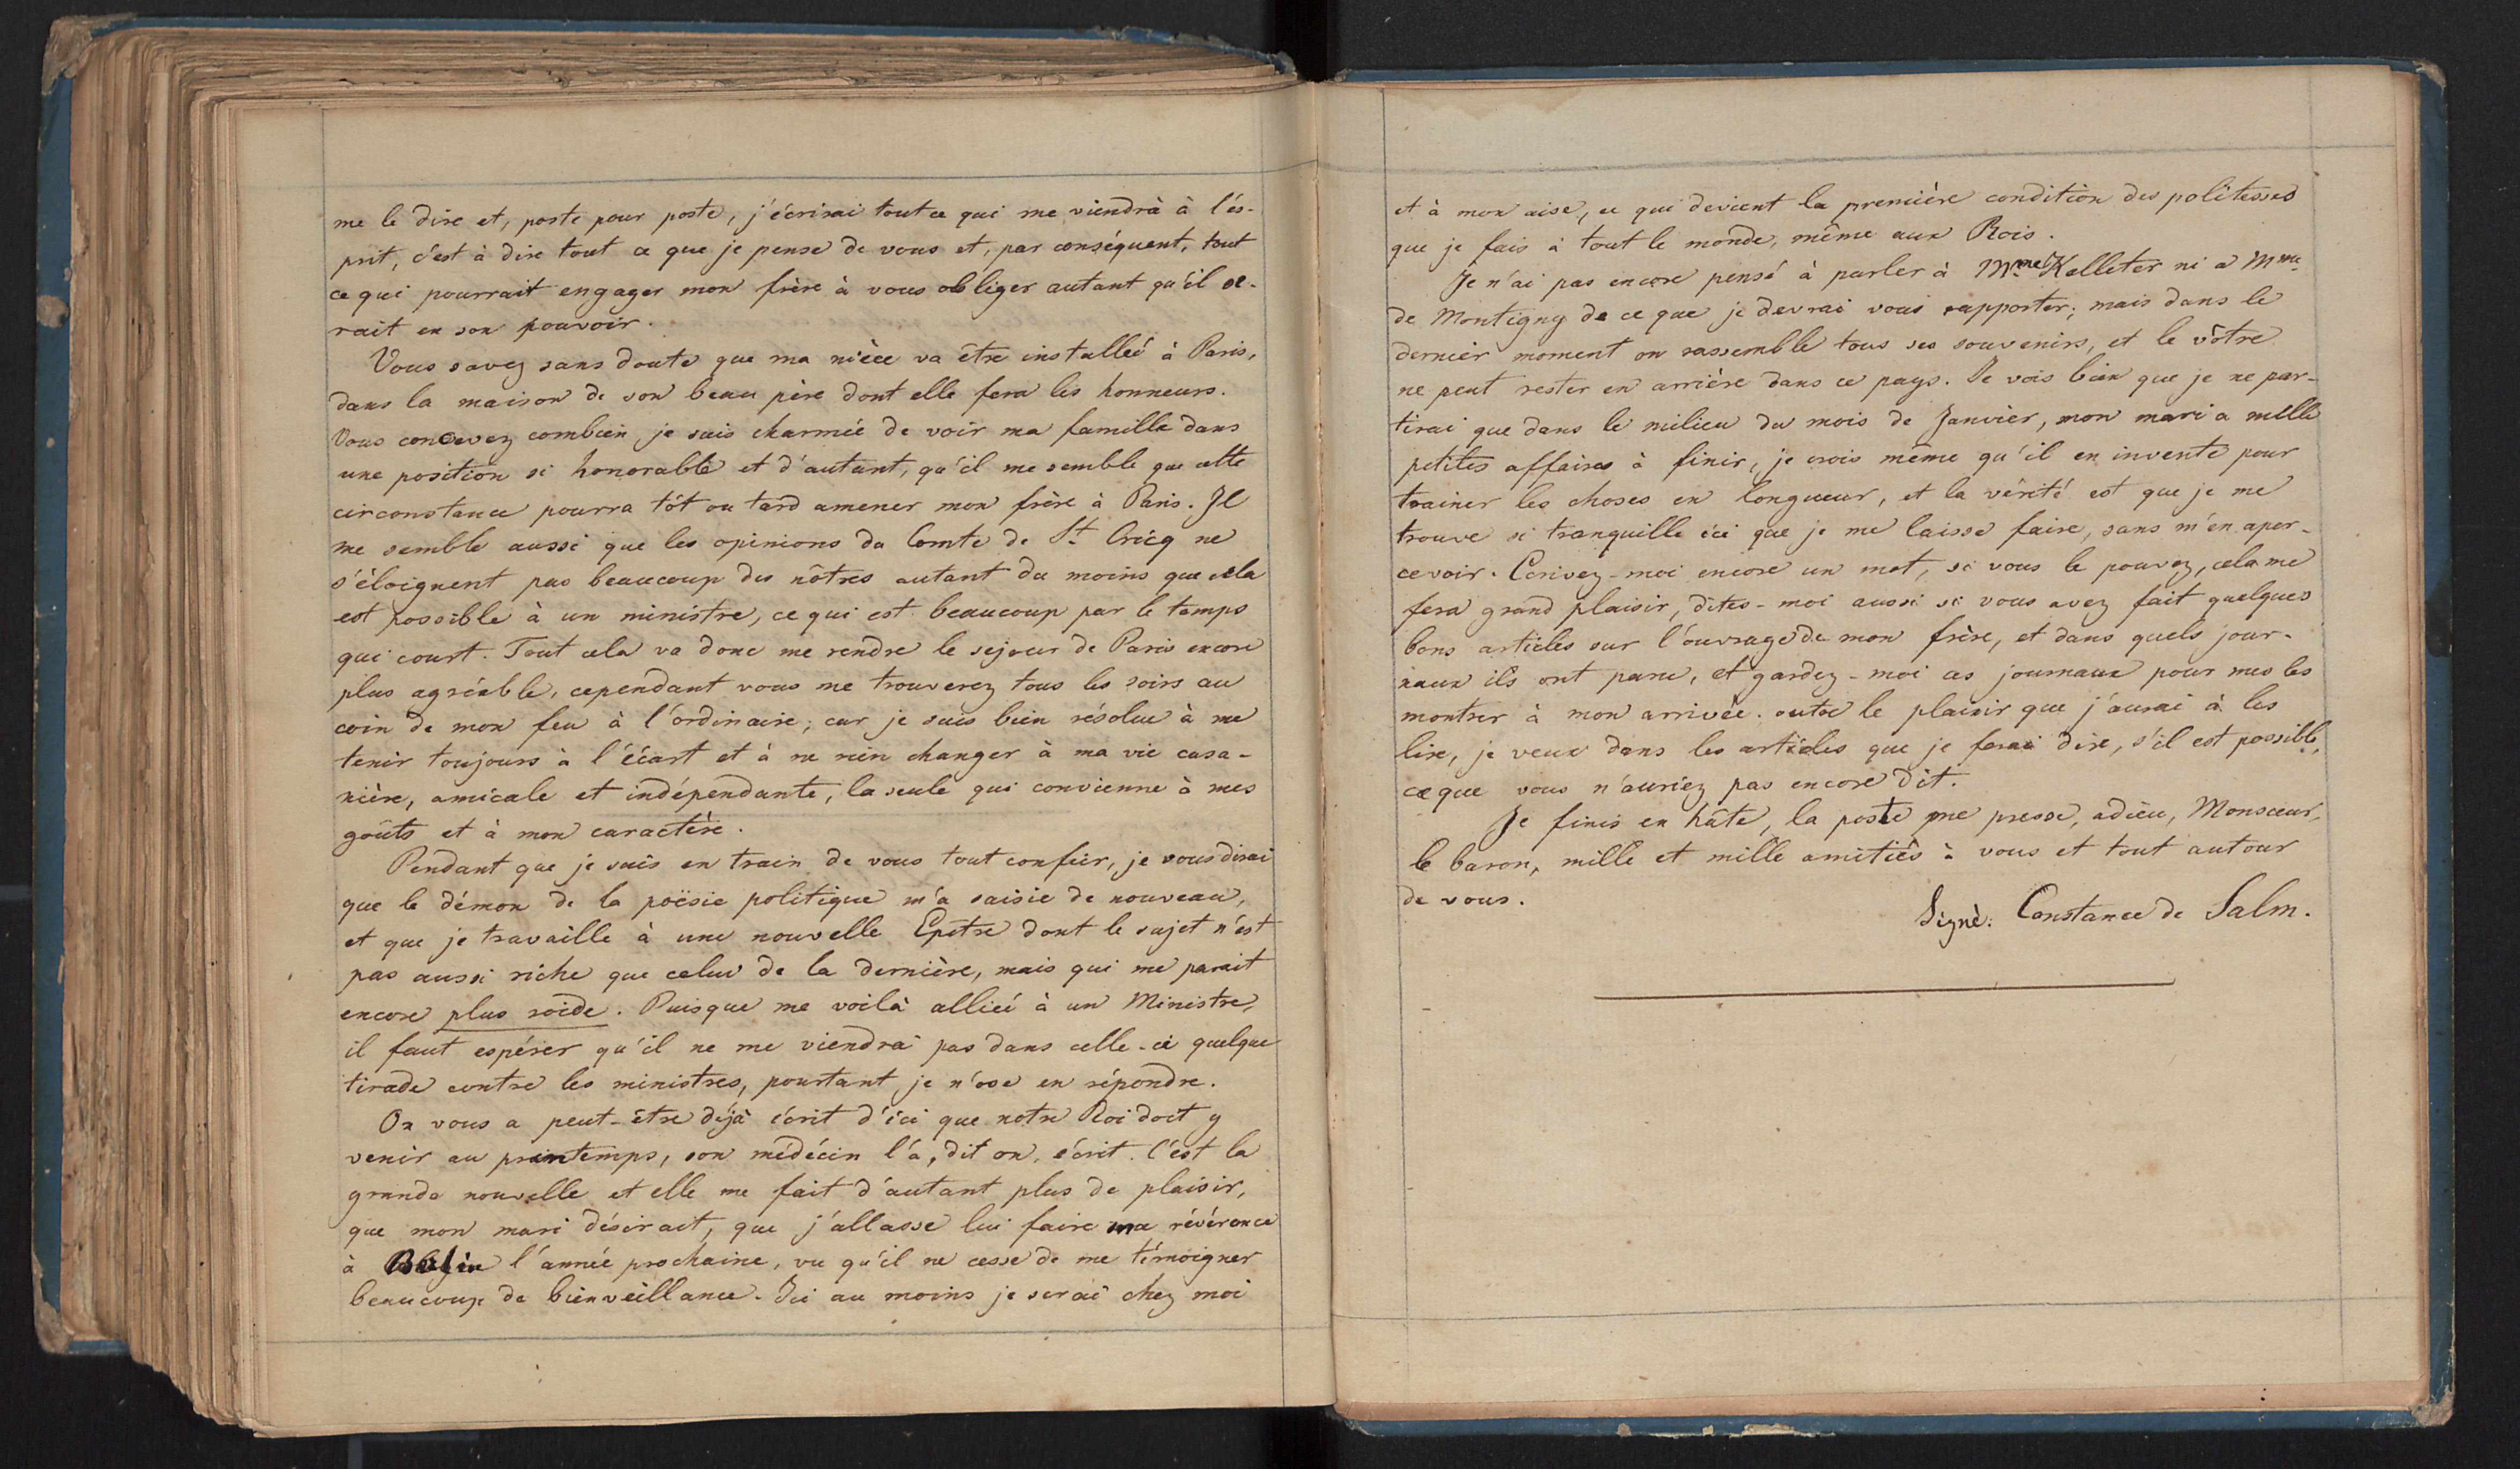 me le dire et, poste pour poste, j'écrirai tout ce qui me viendrà à l'és-
prit, c'est à dire tout ce que je pense de vous et, par conséquent, tout
ce qui pourrait engager mon frère à vous obliger autant qu'il se-
rait en son pouvoir.
Vous savez sans doute que ma nièce va être installeé à Paris,
dans la maison de son beau père dont elle fera les honneurs.
Vous concevez combien je suis charmée de voir ma famille dans
une position si honorable et d'autant, qu'il me semble que cette
circonstance pourra tôt ou tard amener mon frère à Paris. Il
me semble aussi que les opinions du Comte de St. Cricq ne
s'éloignent pas beaucoup des nôtres autant du moins que cela
est possible à un ministre, ce qui est beaucoup par le temps
qui court. Tout cela va donc me rendre le sejour de Paris encore
plus agréable, cependant vous me trouverez tous les soirs au
coin de mon feu à l'ordinaire; car je suis bien résolue à me
tenir toujours à l'écart et à ne rien changer à ma vie casa-
nière, amicale et indépendante, la seule qui convienne à mes
goûts et à mon caractère.
Pendant que je suis en train de vous tout confier, je vous dirai
que le démon de la poësie politique m'a saisie de nouveau,
et que je travaille à une nouvelle Epitre dont le sujet n'est
pas aussi riche que celui de la dernière, mais qui me parait
encore plus roide. Puisque me voilà allieé à un Ministre,
il faut espérer qu'il ne me viendra pas dans celle-ci quelque
tirade contre les ministres, pourtant je n'ose en répondre.
On vous a peut-être déjà écrit d'ici que notre Roi doit y
venir au printemps, son médécin l'a, dit on, écrit. C'est la
grande nouvelle et elle me fait d'autant plus de plaisir,
que mon mari désirait, que j'allasse lui faire ma révérence
à Berlin l'année prochaine, vu qu'il ne cesse de me témoigner
beaucoup de bienveillance. Ici au moins je serai chez moi
et à mon aise, ce qui devient la première condition des politesses
que je fais à tout le monde, même aux Rois.
Je n'ai pas encore pensé à parler à Mme Kelleter ni a Mme
de Montigny de ce que je devrai vous rapporter; mais dans le
dernier moment on rassemble tous ses souvenirs, et le vôtre
ne peut rester en arrière dans ce pays. Je vois bien que je ne par-
tirai que dans le milieu du mois de Janvier, mon mari a mille
petites affaires à finir, je crois même qu'il en invente pour
trainer les choses en longueur, et la vérité est que je me
trouve si tranquille ici que je me laisse faire, sans m'en aper-
cevoir. Ecrivez-moi encore un mot, si vous le pouvez, cela me
fera grand plaisir, dites-moi aussi si vous avez fait quelques
bons articles sur l'ouvrage de mon frère, et dans quels jour-
naux ils ont paru, et gardez-moi ces journaux pour mes les
montrer à mon arrivée. outre le plaisir que j'aurai à les
lire, je veux dans les articles que je ferai dire, s'il est possible,
ce que vous n'auriez pas encore dit.
Je finis en hâte, la poste me presse, adieu, Monsieur,
le baron, mille et mille amitiés à vous et tout autour
de vous.
Signé: Constance de Salm.